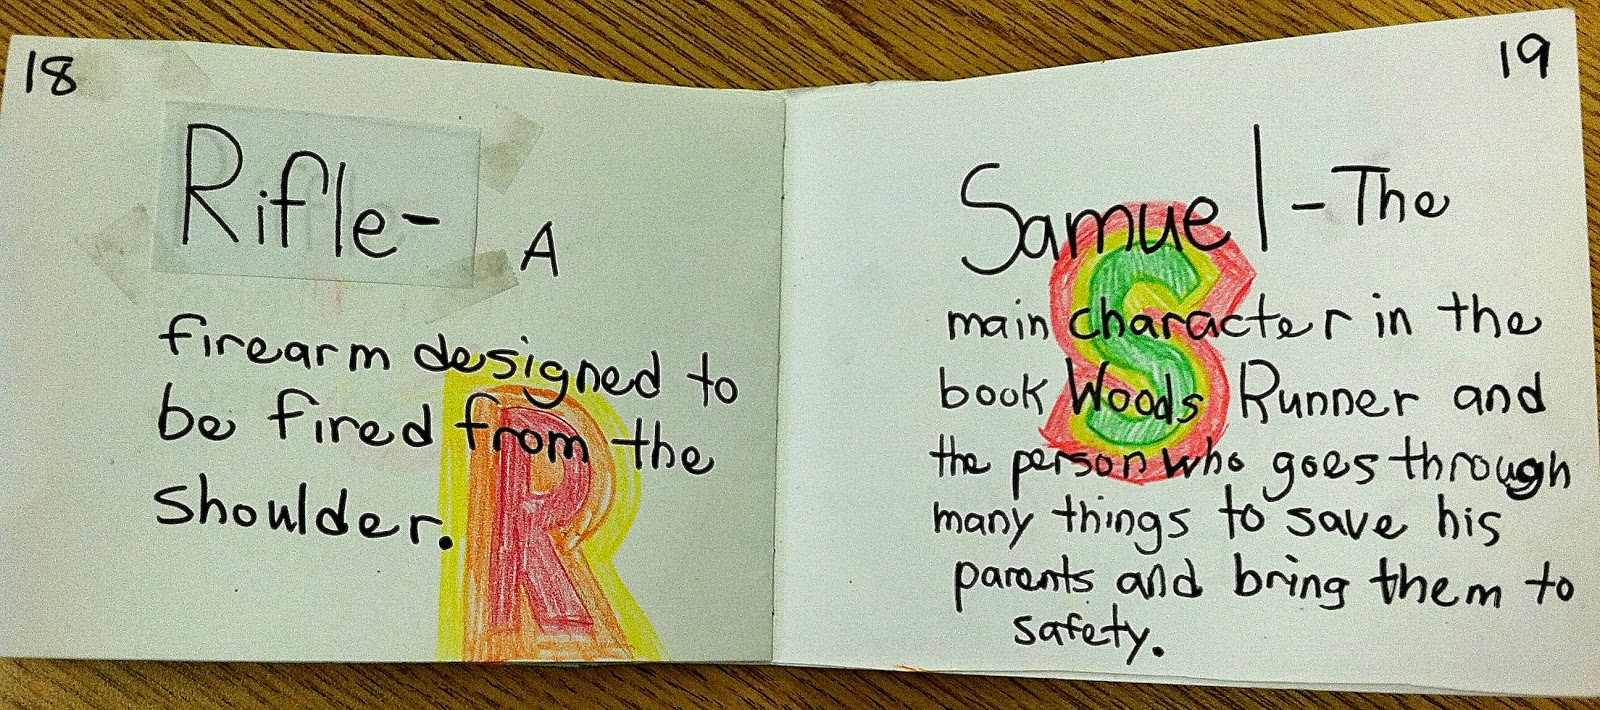 18
Rifle- A
firearm designed to
be fired from the
shoulder.
R
19
Samuel - The
main character in the
book Woods Runner and
the person who goes through
many things to save his
parents and bring them to
safety.
S